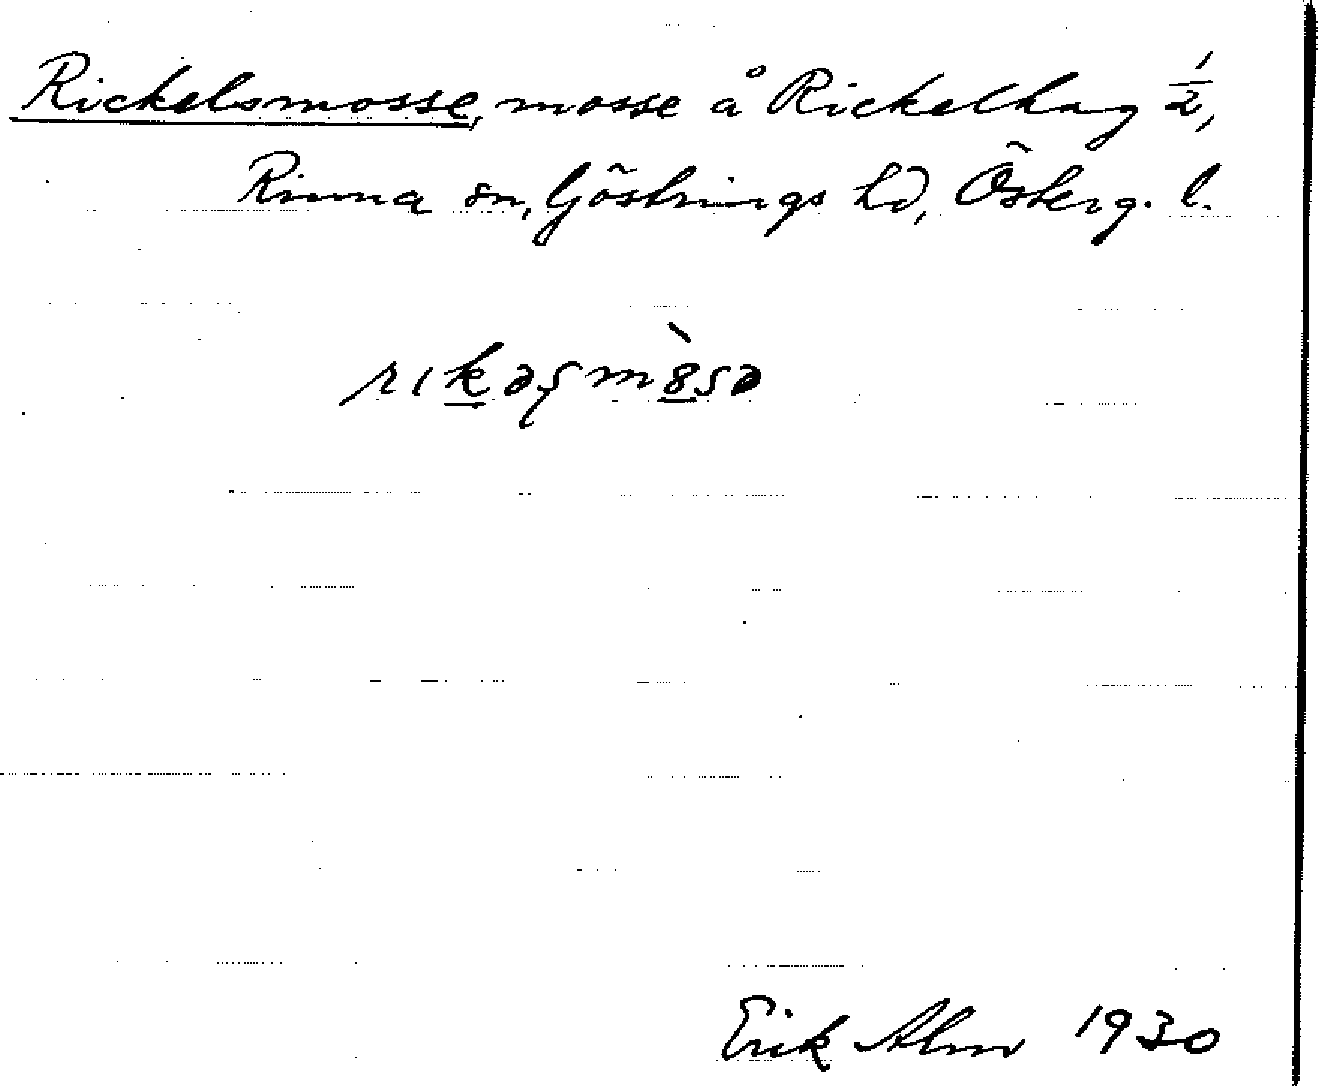 Rickelsmosse, mosse å Rickelhag 1/2,
Rinna sn, Göstrings hd, Österg. l.
rıkəʂm8sə
Erik Alm 1930